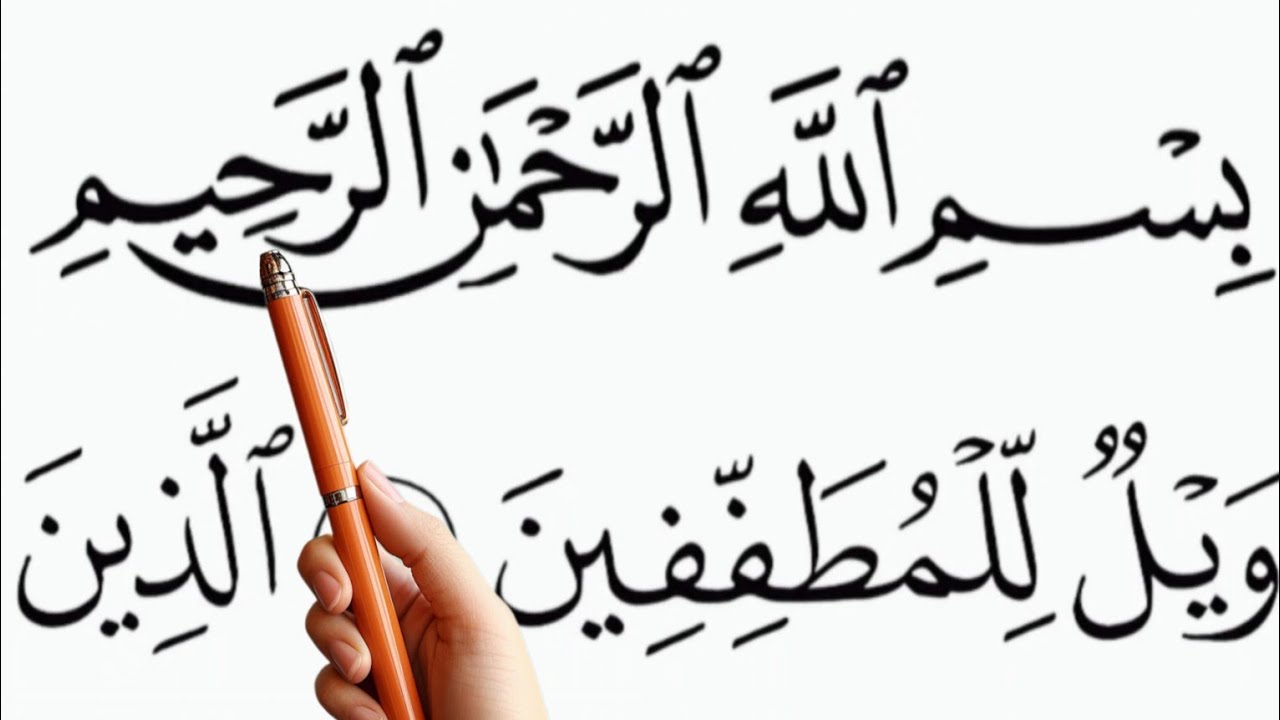 بِسْمِ ٱللَّهِ ٱلرَّحْمَٰنِ ٱلرَّحِيمِ
وَيْلٌ لِّلْمُطَفِّفِينَ ٱلَّذِينَ